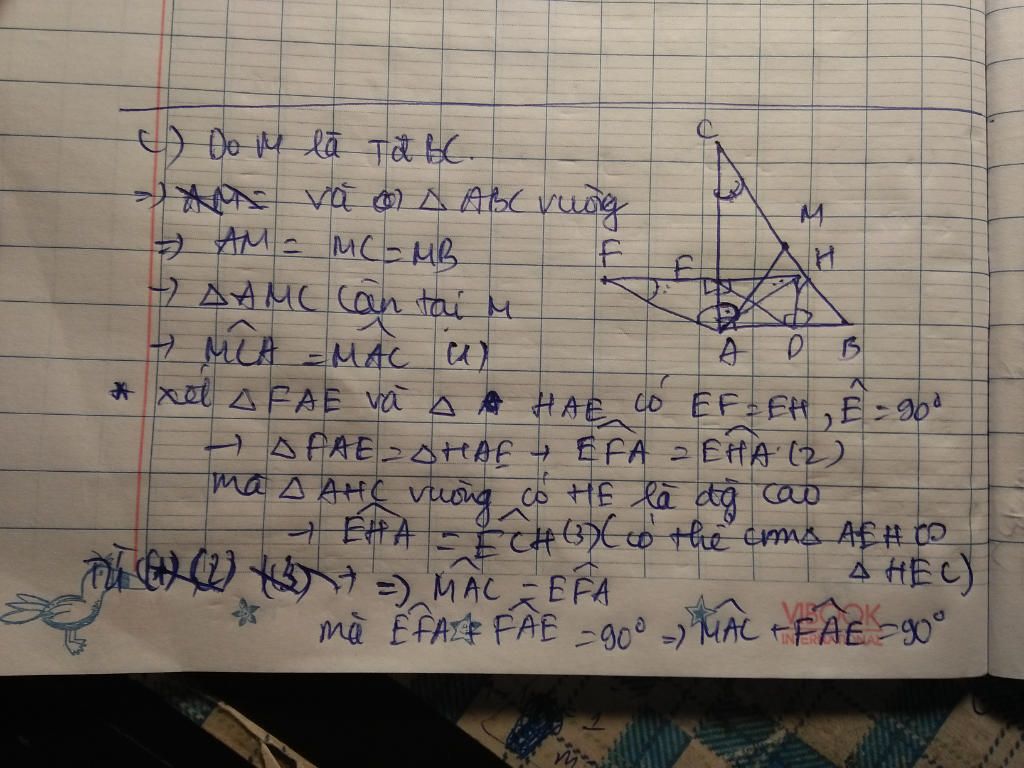 c) Do M là TĐ BC.
=) và △ ABC vuông
=) AM = MC = MB
→ △AMC cân tại M
→ MCA = MAC (1)
* xét △ FAE và △ HAE có EF = EH, Ê = 90°
→ △FAE = △HAE → EFA = EHA (2)
mà △ AHC vuông có HE là đg cao
→ EHA = ECH (3) (có thể cm △ AEH ∽
△ HEC)
=) MAC = EFA
mà EFA + FAE = 90° =) MAC + FAE = 90°
C
M
H
F
E
A
D
B
VIBOOK
INTERNATIONAL